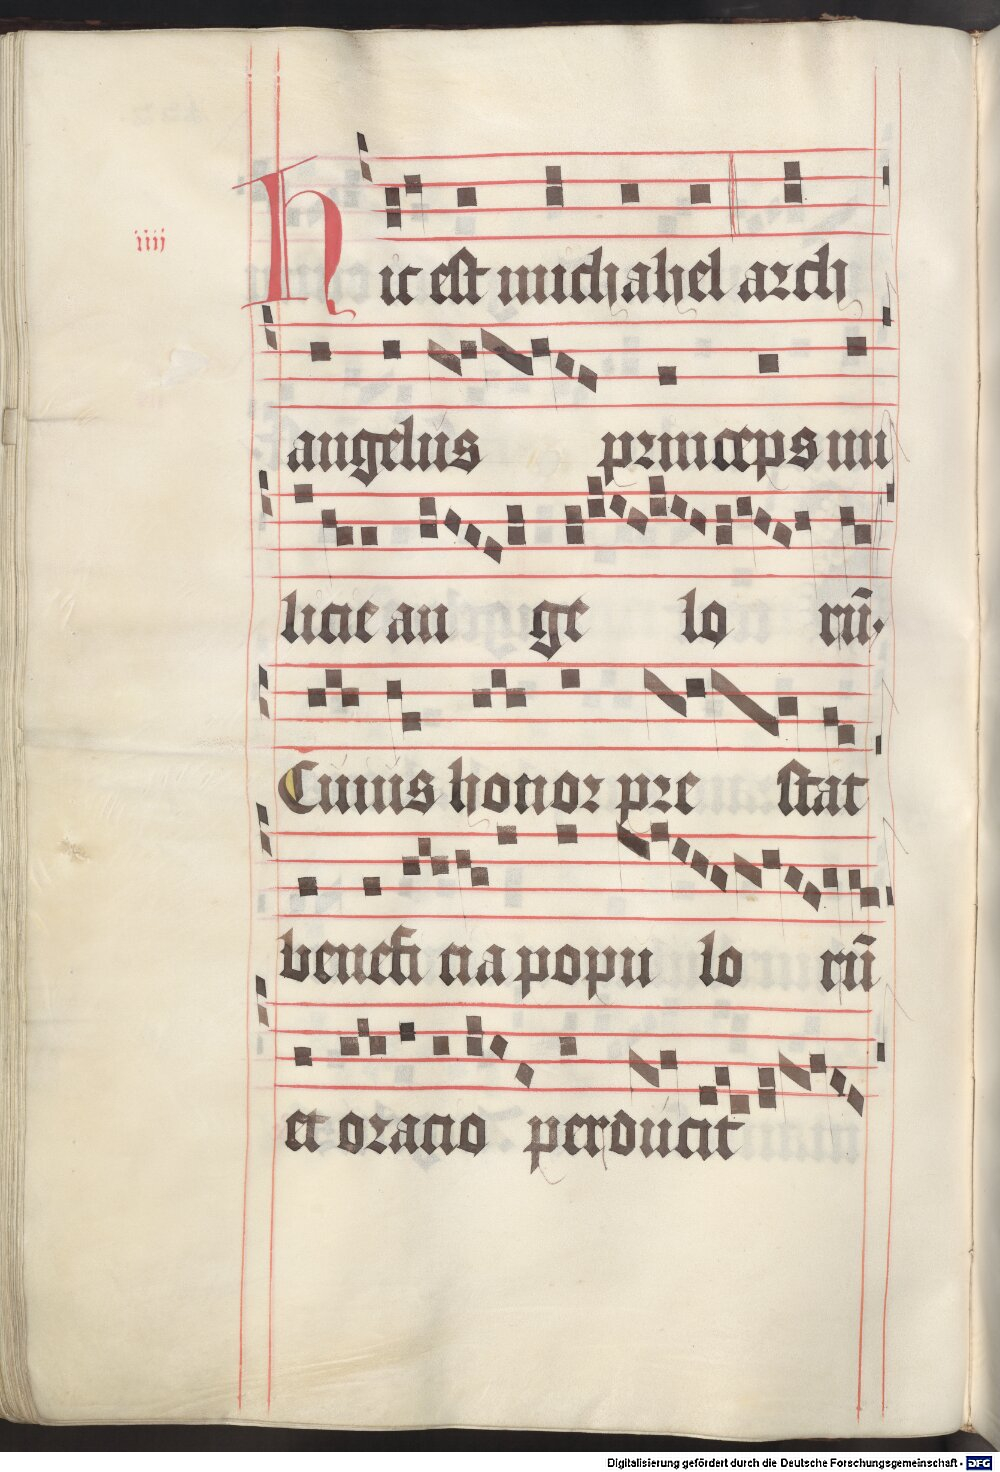 iiij
Hic est michahel arch
angelus princeps mi
licie an ge lo rū.
Cuius honor pre stat
benefi cia popu lo rū
et oracio perducit
Digitalisierung gefördert durch die Deutsche Forschungsgemeinschaft - DFG